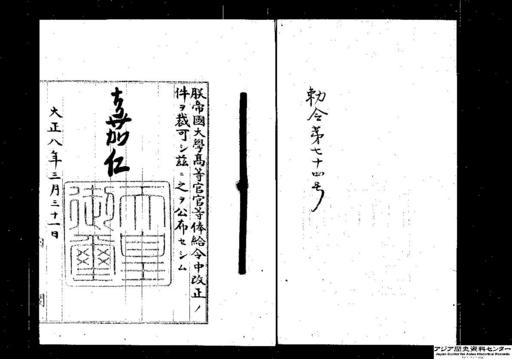 勅令第七十四号
朕帝國大學高等官官等俸給令中改正ノ
件ヲ裁可シ茲ニ之ヲ公布セシム
嘉仁
天皇
御璽
大正八年三月三十一日
アジア歴史資料センター
Japan Center for Asian Historical Records